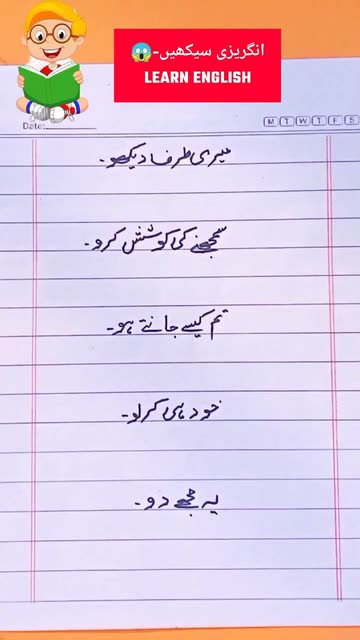 انگریزی سیکھیں-😱
LEARN ENGLISH
Date:
M T W T F S
میری طرف دیکھو۔
سمجھنے کی کوشش کرو۔
تم کیسے جانتے ہو۔
خود ہی کرلو۔
یہ مجھے دو۔